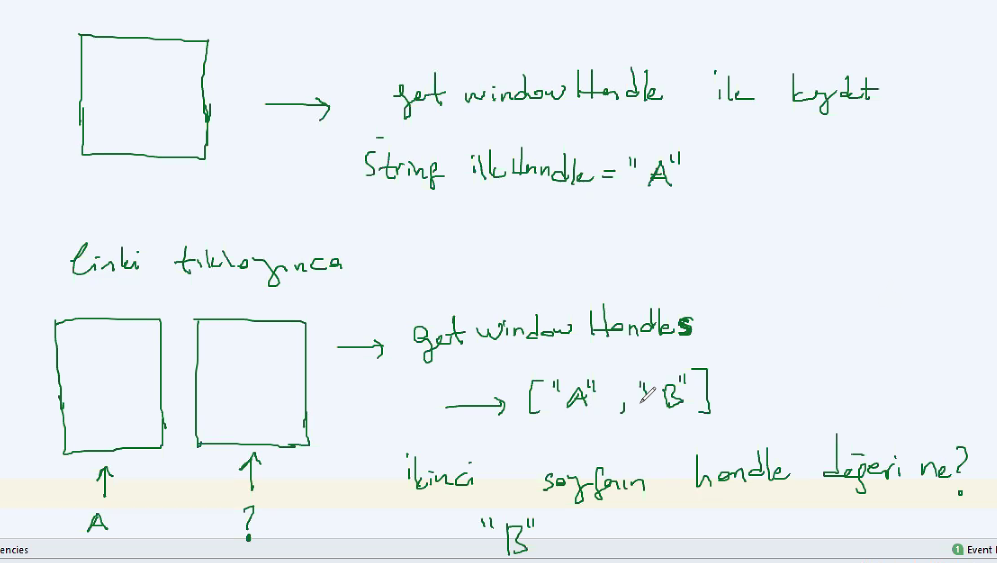 get windowHandle ile kaydet
String ilkHandle = "A"
linki tıklayınca
get window Handles
["A", "B"]
ikinci sayfanın handle değeri ne?
A
?
"B"
encies
1 Event